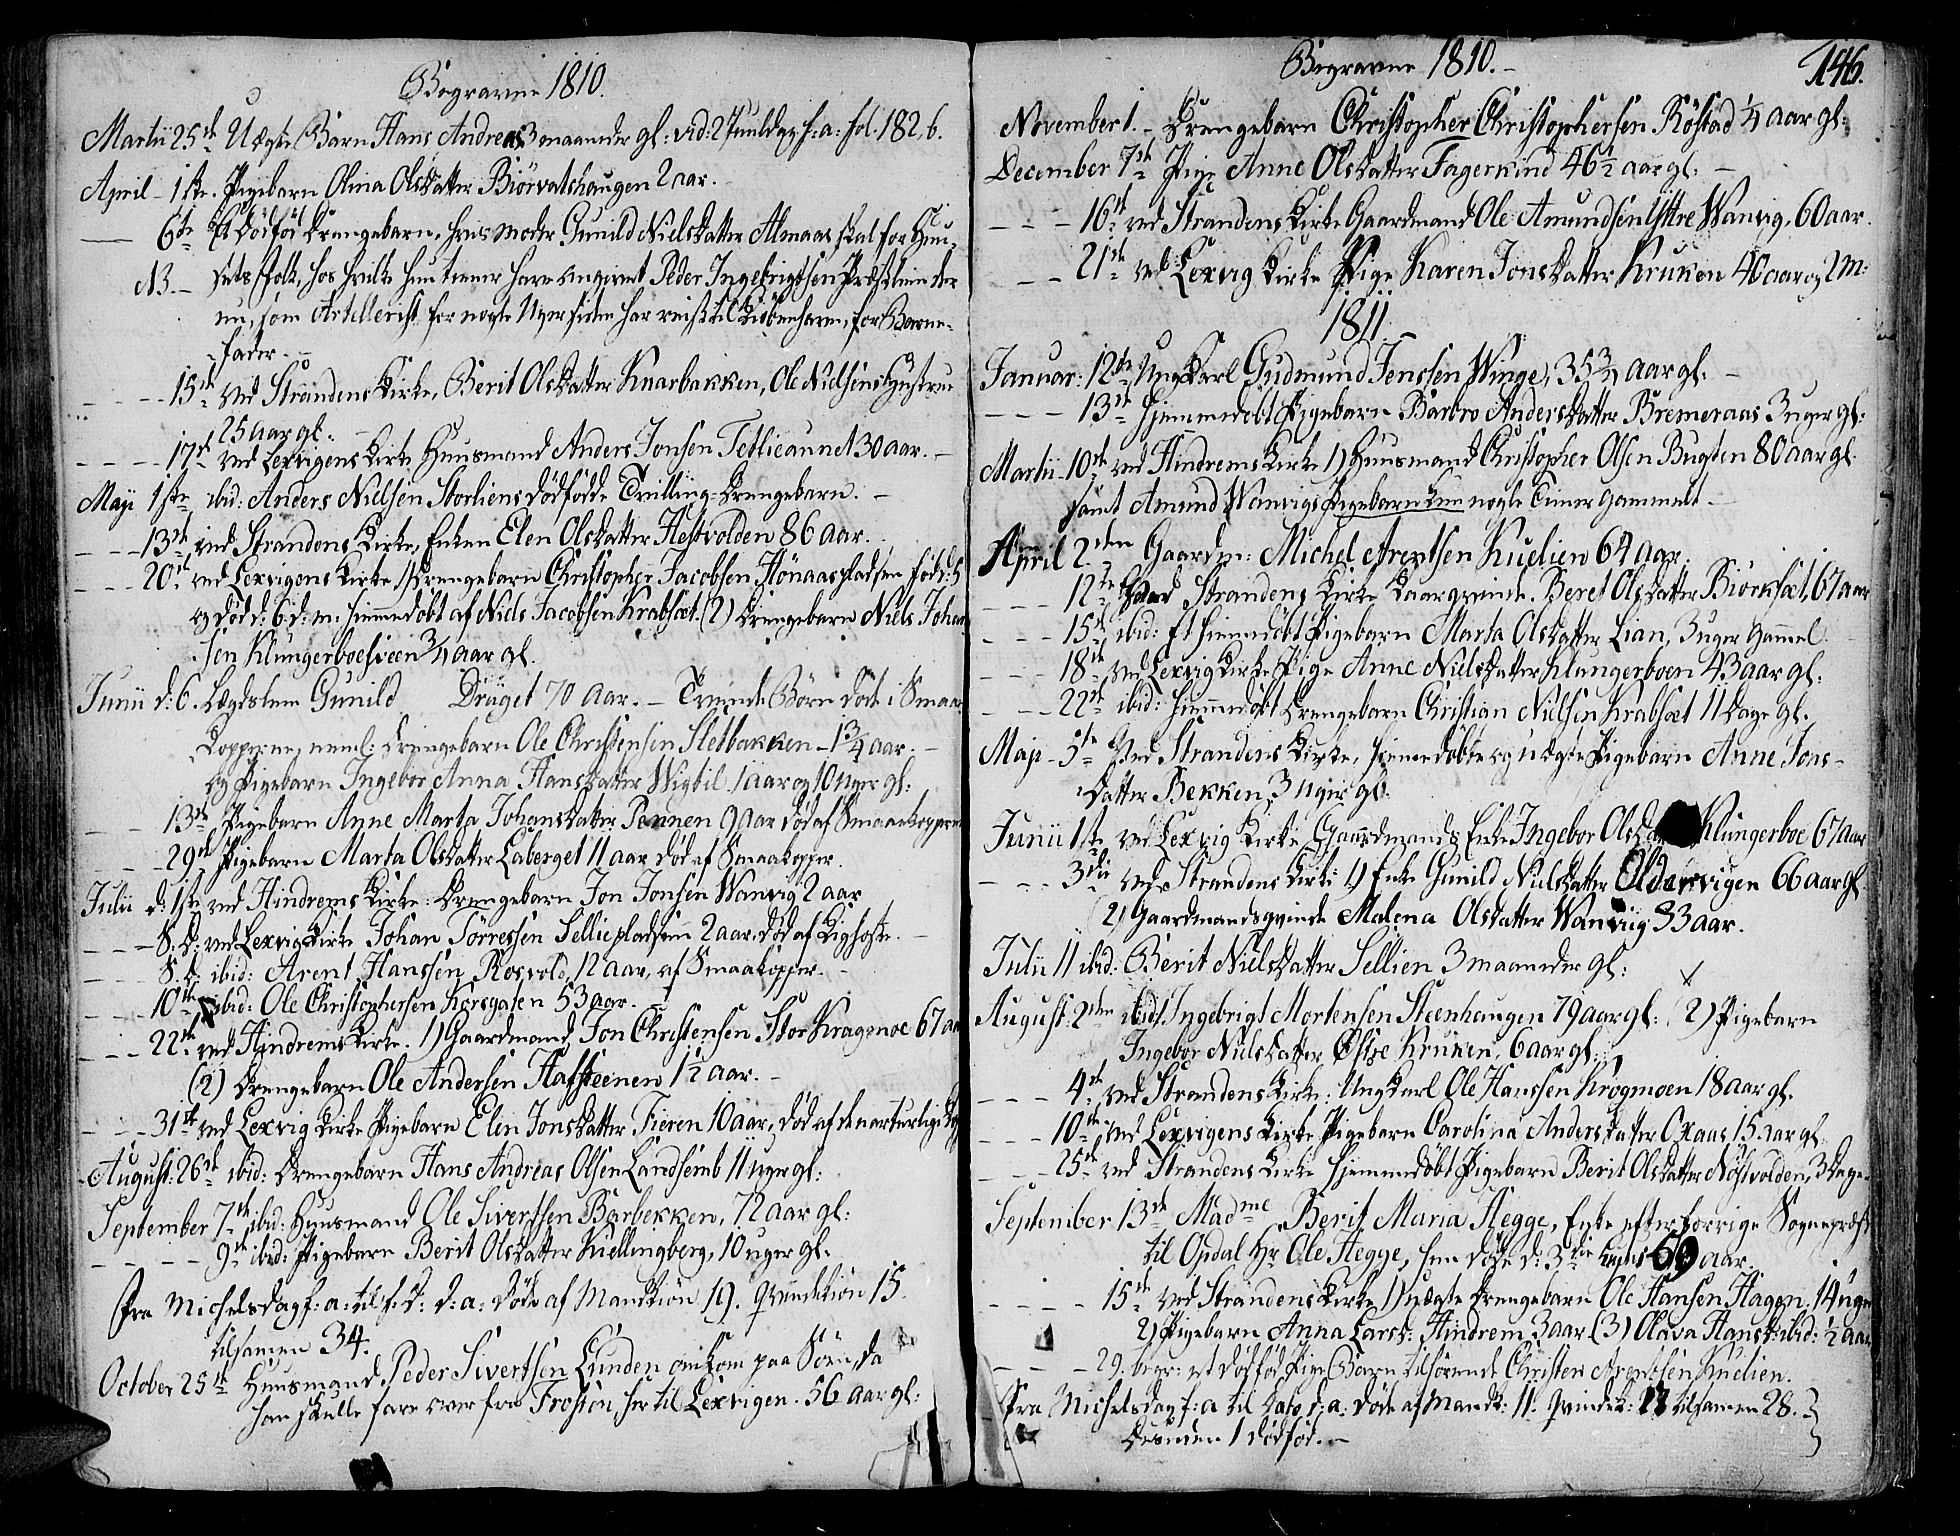 Begravne 1810.
Martii 25de Uægte Barn Hans Andreas 3 maaneder gl: vid: 2 Juuledag f: a: fol. 182, 6.
April - 1ste. Pigebarn Olina Olsdatter Biörvatshaugen 2 aar.
6te Et Dödföd Drengebarn, hvis Moder Gunild Nielsdatter Almaas skal for Huu-
NB. - sets Folk, hos hvilke hun tiener have angivet Peder Ingebrigtsen Præstlien der
nu, som Artellerist for nogle Uger siden har reist til Kiöbenhavn, for Barne-
fader. -
- - - 15de ved Strandens Kirke, Berit Olsdatter Knarbakken, Ole Nielsens Hustrue
25 aar gl. -
- - - - 17de ved Lexvigens Kirke Huusmand Anders Jonsen Tetlieaunet 30 aar. -
Maji 1ste ibid: Anders Nielsen Storliens dödfödde Trilling-Drengebarn. -
- - - 13de ved Strandens Kirke, Enken Elen Olsdatter Hestvolden 86 aar.
- - - 20de ved Lexvigens Kirke 1) Drengebarn Christopher Jacobsen Hönaaspladsen föd d: 5
og död d: 6. d: m: hiemmedöbt af Niels Jacobsen Krabsæt. (2) Drengebarn Niels Johan
sen Klungerboesveen 3/4 aar gl.
Junii d: 6. Lægdslem Gunild Drüget 70 aar. - Tvende Börn döde i Smaae
Kopperne, neml: Drengebarn Ole Christensen Sletbakken - 1 3/4 aar. -
og Pigebarn Ingebor Anna Hansdatter Wigtil 1 aar og 10 uger gl:
- - - 13de Pigebarn Anne Marta Johansdatter Pennen 9 aar död af Smaakopperne
- - - 29de Pigebarn Marta Olsdatter Laberget 11 aar död af Smaakopper.
Julii d: 1ste ved Hindrems Kirke: Drengebarn Jon Jonsen Wanvig 2 aar
- - - S: D: ved Lexvig Kirke Johan Törresen Selliepladsen 2 aar, död af Kighoste. -
- - - S. d: ibid: Arent Hanssen Rosvold, 12 aar, af Smaakopper. -
- - - - 10de ibid: Ole Christophersen Korsgaten 53 aar. -
- - - - 22de ved Hindrems Kirke. 1) Gaardmand Jon Christensen Stor Kragenoe 67 aar
(2) Drengebarn Ole Andersen Hafsteenen 1 1/2 aar. -
- - - - 31te ved Lexvig Kirke Pigebarn Elen Jonsdatter Fieren 10 aar, död af de narturlige
August: 26de ibid: Drengebarn Hans Andreas Olsen Landsemb 11 uger gl:
September 7de ibid: Huusmand Ole Sivertsen Barbekken, 72 aar gl:
- - - - - 9de ibid: Pigebarn Berit Olsdatter Kiellingberg, 10 uger gl:
Fra Michelsdag f: a: til s: D: d: a: döde af Mandkiön 19. Qvindekiön 15.
tilsamen 34.
October 25de Huusmand Peder Sivertsen Lunden omkom paa Söen, da
han skulle fare over fra Frosten, her til Lexvigen. 56 aar gl:
Begravne 1810. - 146.
November 1. - Drengebarn Christopher Christophersen Röstad 1/4 aar gl:
December 7de Pige Anne Olsdatter Fagerkind 46 1/2 aar gl: -
- - - 16de ved Strandens Kirke Gaardmand Ole Amundsen Yttre Wanvig, 60 aar.
- - 21de ved Lexvig Kirke Pige Karen Jonsdatter Kruken 40 aar og 2 m:
1811
Januar: 12te Ungkarl Gudmund Jenssen Winge, 35 3/4 aar gl: -
- - - 13de hiemmedöbt Pigebarn Barbro Andersdatter Bremeraas 3 uger gl:
Martii 10de ved Hindrems Kirke 1) Huusmand Christopher Olsen Bugten 80 aar gl.
samt Amund Wanvigs Pigebarn kun nogle Timer gammelt -
April 2den Gaardm: Michel Arentsen Kuelien 64 aar.
- - - 12te ved Strandens Kirke Kaarqvinde Beret Olsdatter Biörksæt, 67 aar
- - - 15de ibid: Et hiemmedöbt Pigebarn Marta Olsdatter Lian, 3 uger gammel
- - - 18de ved Lexvig Kirke Pige Anne Nielsdatter Klungerboen 43 aar gl:
- - - 22de ibid: hiemmedöbt Drengebarn Christian Nielsen Krabsæt 11 Dage gl.
Maji - 5te Ved Strandens Kirke, hiemmedöbte og uægte Pigebarn Anne Jons-
datter Bekken, 3 uger gl.
Junii 1ste ved Lexvig Kirke Gaardmands Enke Ingebor Olsda Klungerboe 67 aar
- - - 3die ved Strandens Kirke 1) Enke Gunild Nielsdatter Oldervigen 66 aar gl.
(2) Gaardmandsqvinde Malena Olsdatter Wanviig 33 aar.
Julii 11 ibid: Berit Nielsdatter Sellien 3 maaneder gl:
August: 2den ibid: Ingebrigt Mortensen Steenhaugen 79 aar gl: (2) Pigebarn
Ingebor Nielsdatter Østre Kruken, 6 aar gl:
- - - 4de ved Strandens Kirke: Ungkarl Ole Hanssen Krogmoen 18 aar gl.
- - - 10de ved Lexvigens Kirke Pigebarn Carolina Andersdatter Oxaas 15 aar gl:
- - - 25de ved Strandens Kirke hiemmedöbt Pigebarn Berit Olsdatter Nöstvolden, 3 Dage
September 13de Madme Berit Maria Hegge, Enke efter forrige Sognepræst
til Opdal Hr Ole Hegge, hun döde d: 3die 69 aar.
- - - - 15de ved Strandens Kirke 1) uægte Drengebarn Ole Hansen Hagen. 14 uger
2) Pigebarn Anna Larsd: Hindrem 3 aar (3) Olava Hansd: ibid: 1/2 aar
- - - - 29. begr: et dödföd Pige Barn tilhörende Christen Arentsen Kuelien.
Fra Michelsdag f: a til Dato d: a: döde af Mandk: 11. Qvindek: 17 tilsamen 28.
Desuden 1 dödföd. -